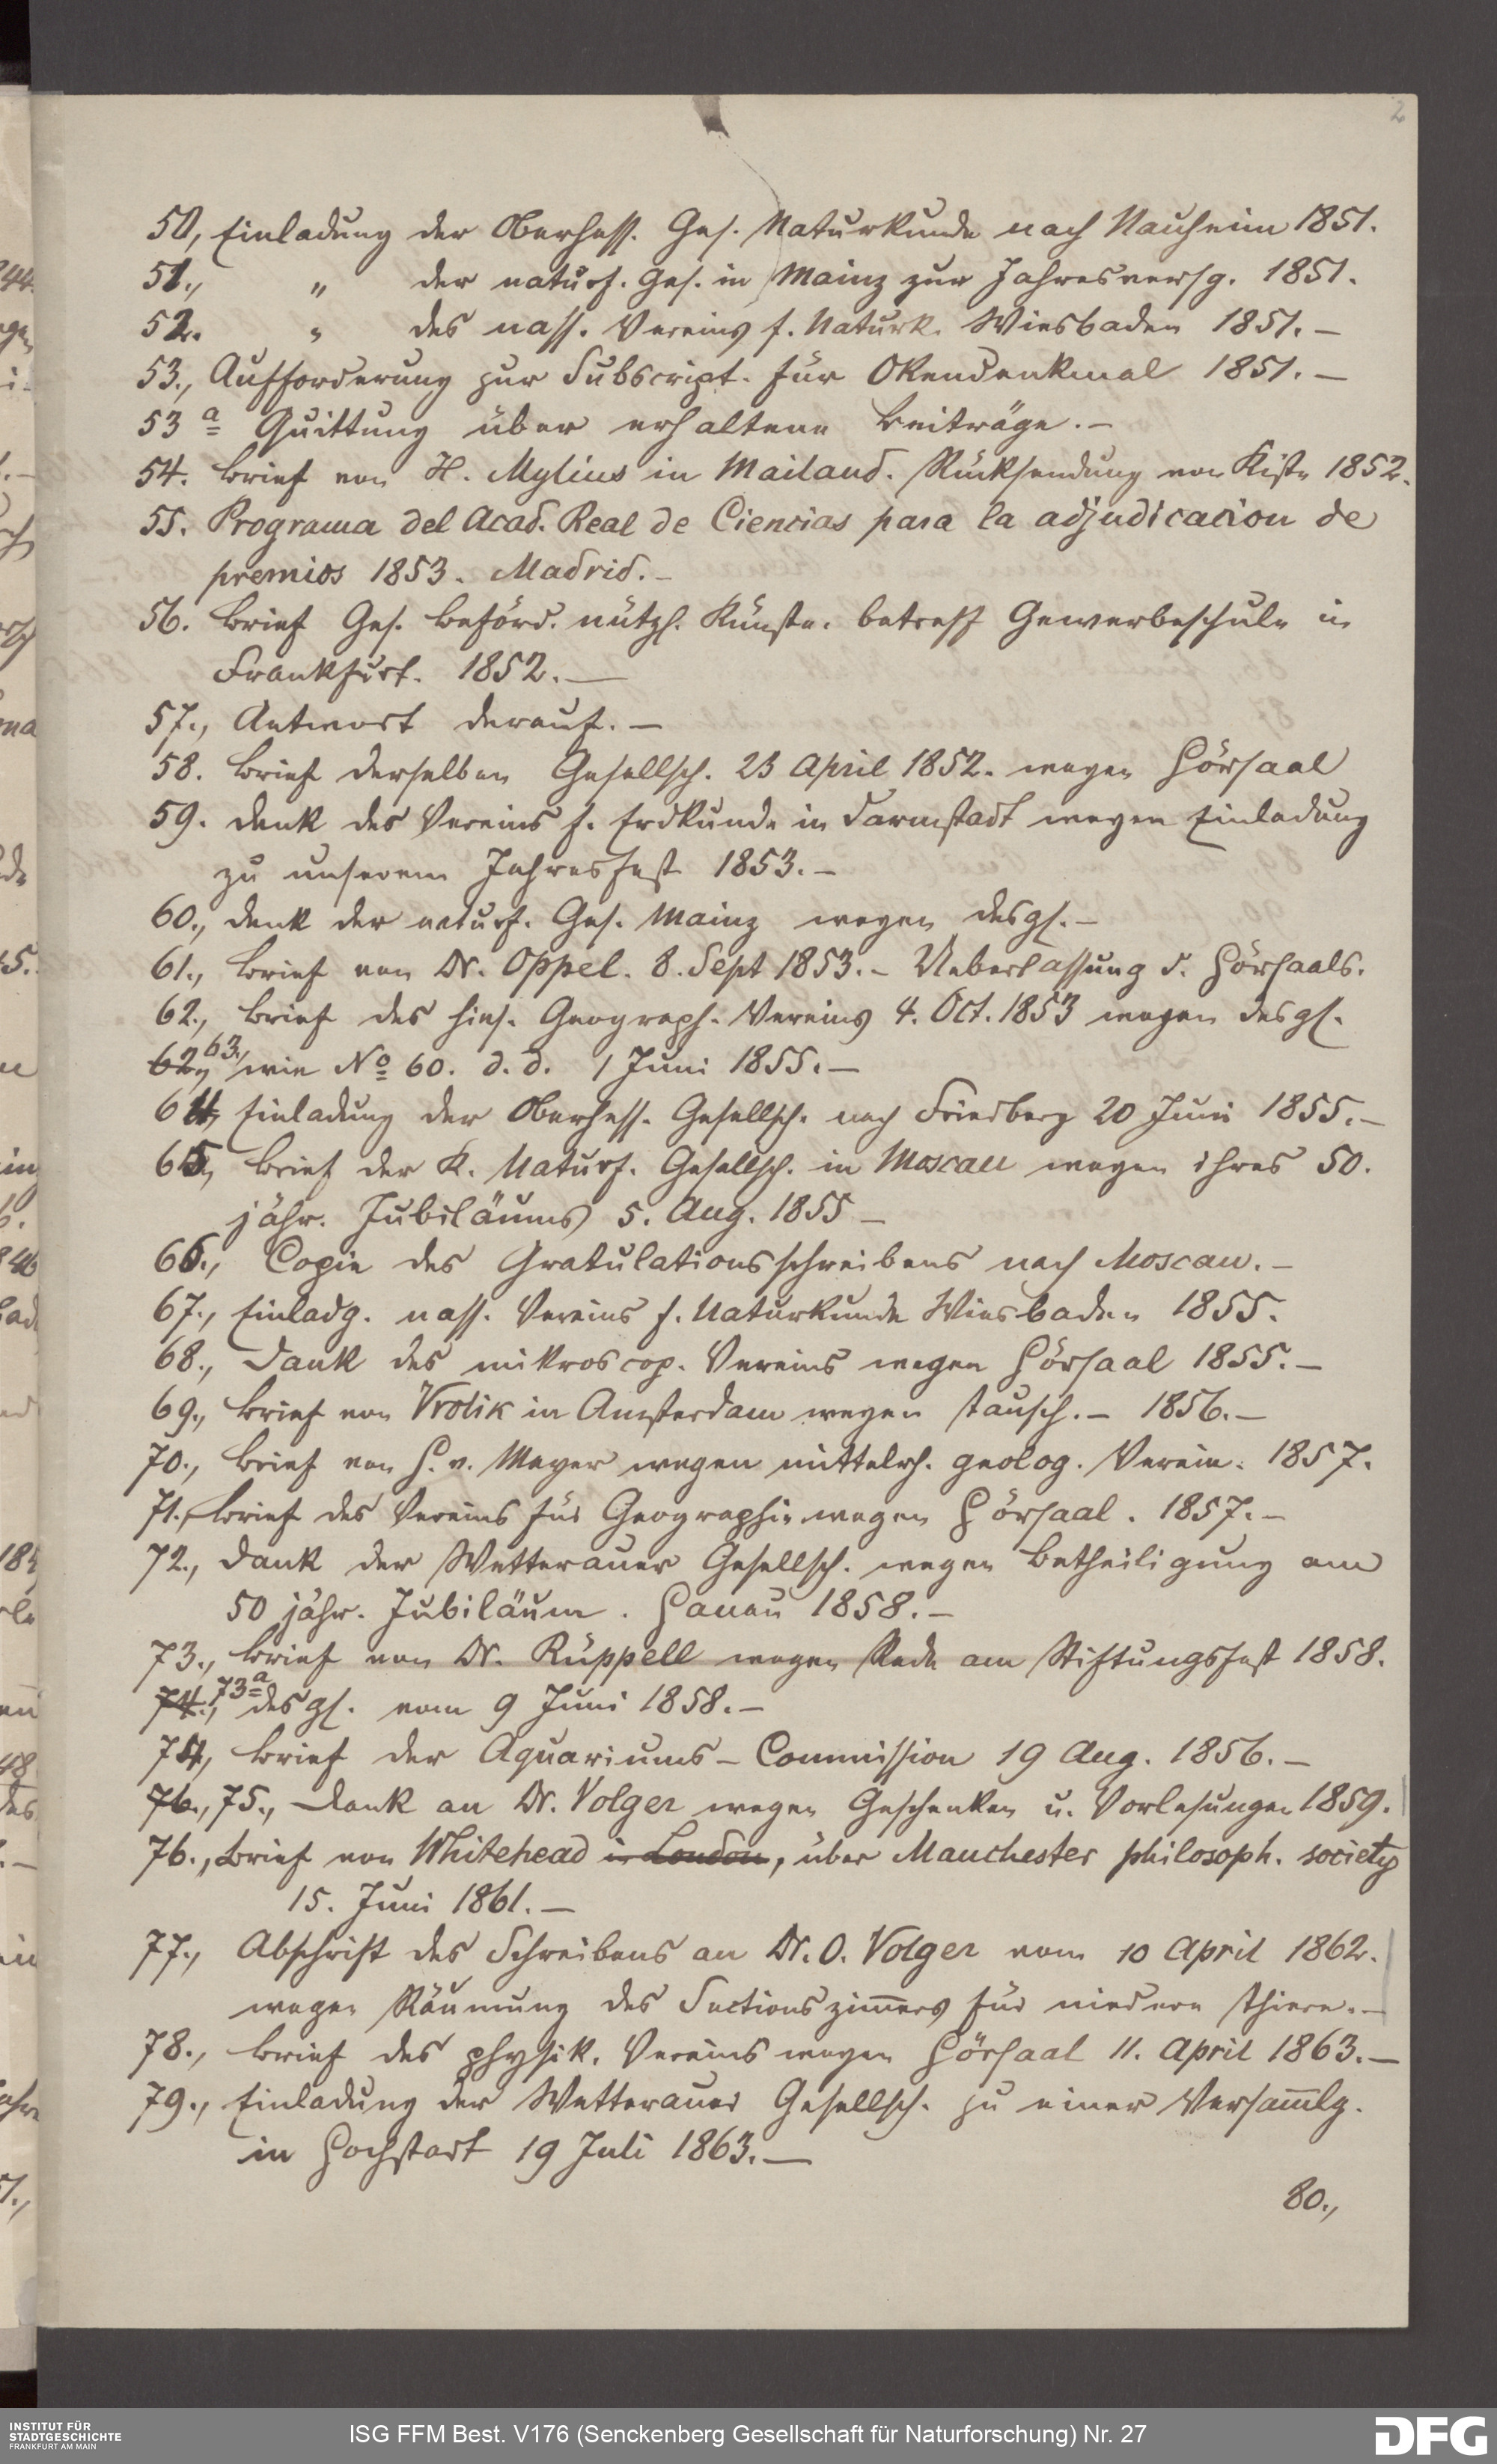 2
50, Einladung der Oberhess. Ges. Naturkunde nach Nauheim 1851.
51., " der naturf. Ges. in Mainz zur Jahresversg. 1851.
52. " des nass. Vereins f. Naturk. Wiesbaden 1851.–
53., Aufforderung zur Subscript. für Okendenkmal 1851.–
53 a Quittung über erhaltene Beiträge.–
54. Brief von H. Mylius in Mailand. Rücksendung von Kiste 1852.
55. Programa del Acad. Real de Ciencias para la adjudicacion de
premios 1853. Madrid.–
56. Brief Ges. Beförd. nützl. Künste. betreff Gewerbeschule in
Frankfurt. 1852.–
57., Antwort darauf.–
58. Brief derselben Gesellsch. 23 April 1852. wegen Hörsaal
59. Dank des Vereins f. Erdkunde in Darmstadt wegen Einladung
zu unserem Jahresfest 1853.–
60., Dank der naturf. Ges. Mainz wegen desgl.–
61., Brief von Dr. Oppel. 8. Sept 1853.– Ueberlassung d. Hörsaals.
62., Brief des hies. Geograph. Vereins 4. Oct. 1853 wegen desgl.
62., 63., wie No 60. d. d. 1 Juni 1855.–
64, Einladung der Oberhess. Gesellsch. nach Friedberg 20 Juni 1855.–
65, Brief der K. Naturf. Gesellsch. in Moscau wegen ihres 50.
jähr. Jubiläums 5. Aug. 1855 –
66., Copie des Gratulationsschreibens nach Moscau.–
67., Einladg. nass. Vereins f. Naturkunde Wiesbaden 1855.
68., Dank des mikroscop. Vereins wegen Hörsaal 1855.–
69., Brief von Vrolik in Amsterdam wegen Tausch.– 1856.–
70., Brief von H. v. Meyer wegen mittelrh. geolog. Verein. 1857.
71., Brief des Vereins für Geographie wegen Hörsaal. 1857.–
72., Dank der Wetterauer Gesellsch. wegen Betheiligung am
50 jähr. Jubiläum. Hanau 1858.–
73., Brief von Dr. Rüppell wegen Rede am Stiftungsfest 1858.
74., 73a desgl. vom 9 Juni 1858.–
74, Brief der Aquariums-Commission 19 Aug. 1856.–
76., 75., Dank an Dr. Volger wegen Geschenken u. Vorlesungen 1859.
76., Brief von Whitehead in London, über Manchester philosoph. society
15. Juni 1861.–
77., Abschrift des Schreibens an Dr. O. Volger vom 10 April 1862.
wegen Räumung des Sectionszimmers für niedere Thiere.–
78., Brief des physik. Vereins wegen Hörsaal 11. April 1863.–
79., Einladung der Wetterauer Gesellsch. zu einer Versammlg.
in Hochstart 19 Juli 1863.–
80.,
INSTITUT FÜR
STADTGESCHICHTE
FRANKFURT AM MAIN
ISG FFM Best. V176 (Senckenberg Gesellschaft für Naturforschung) Nr. 27
DFG